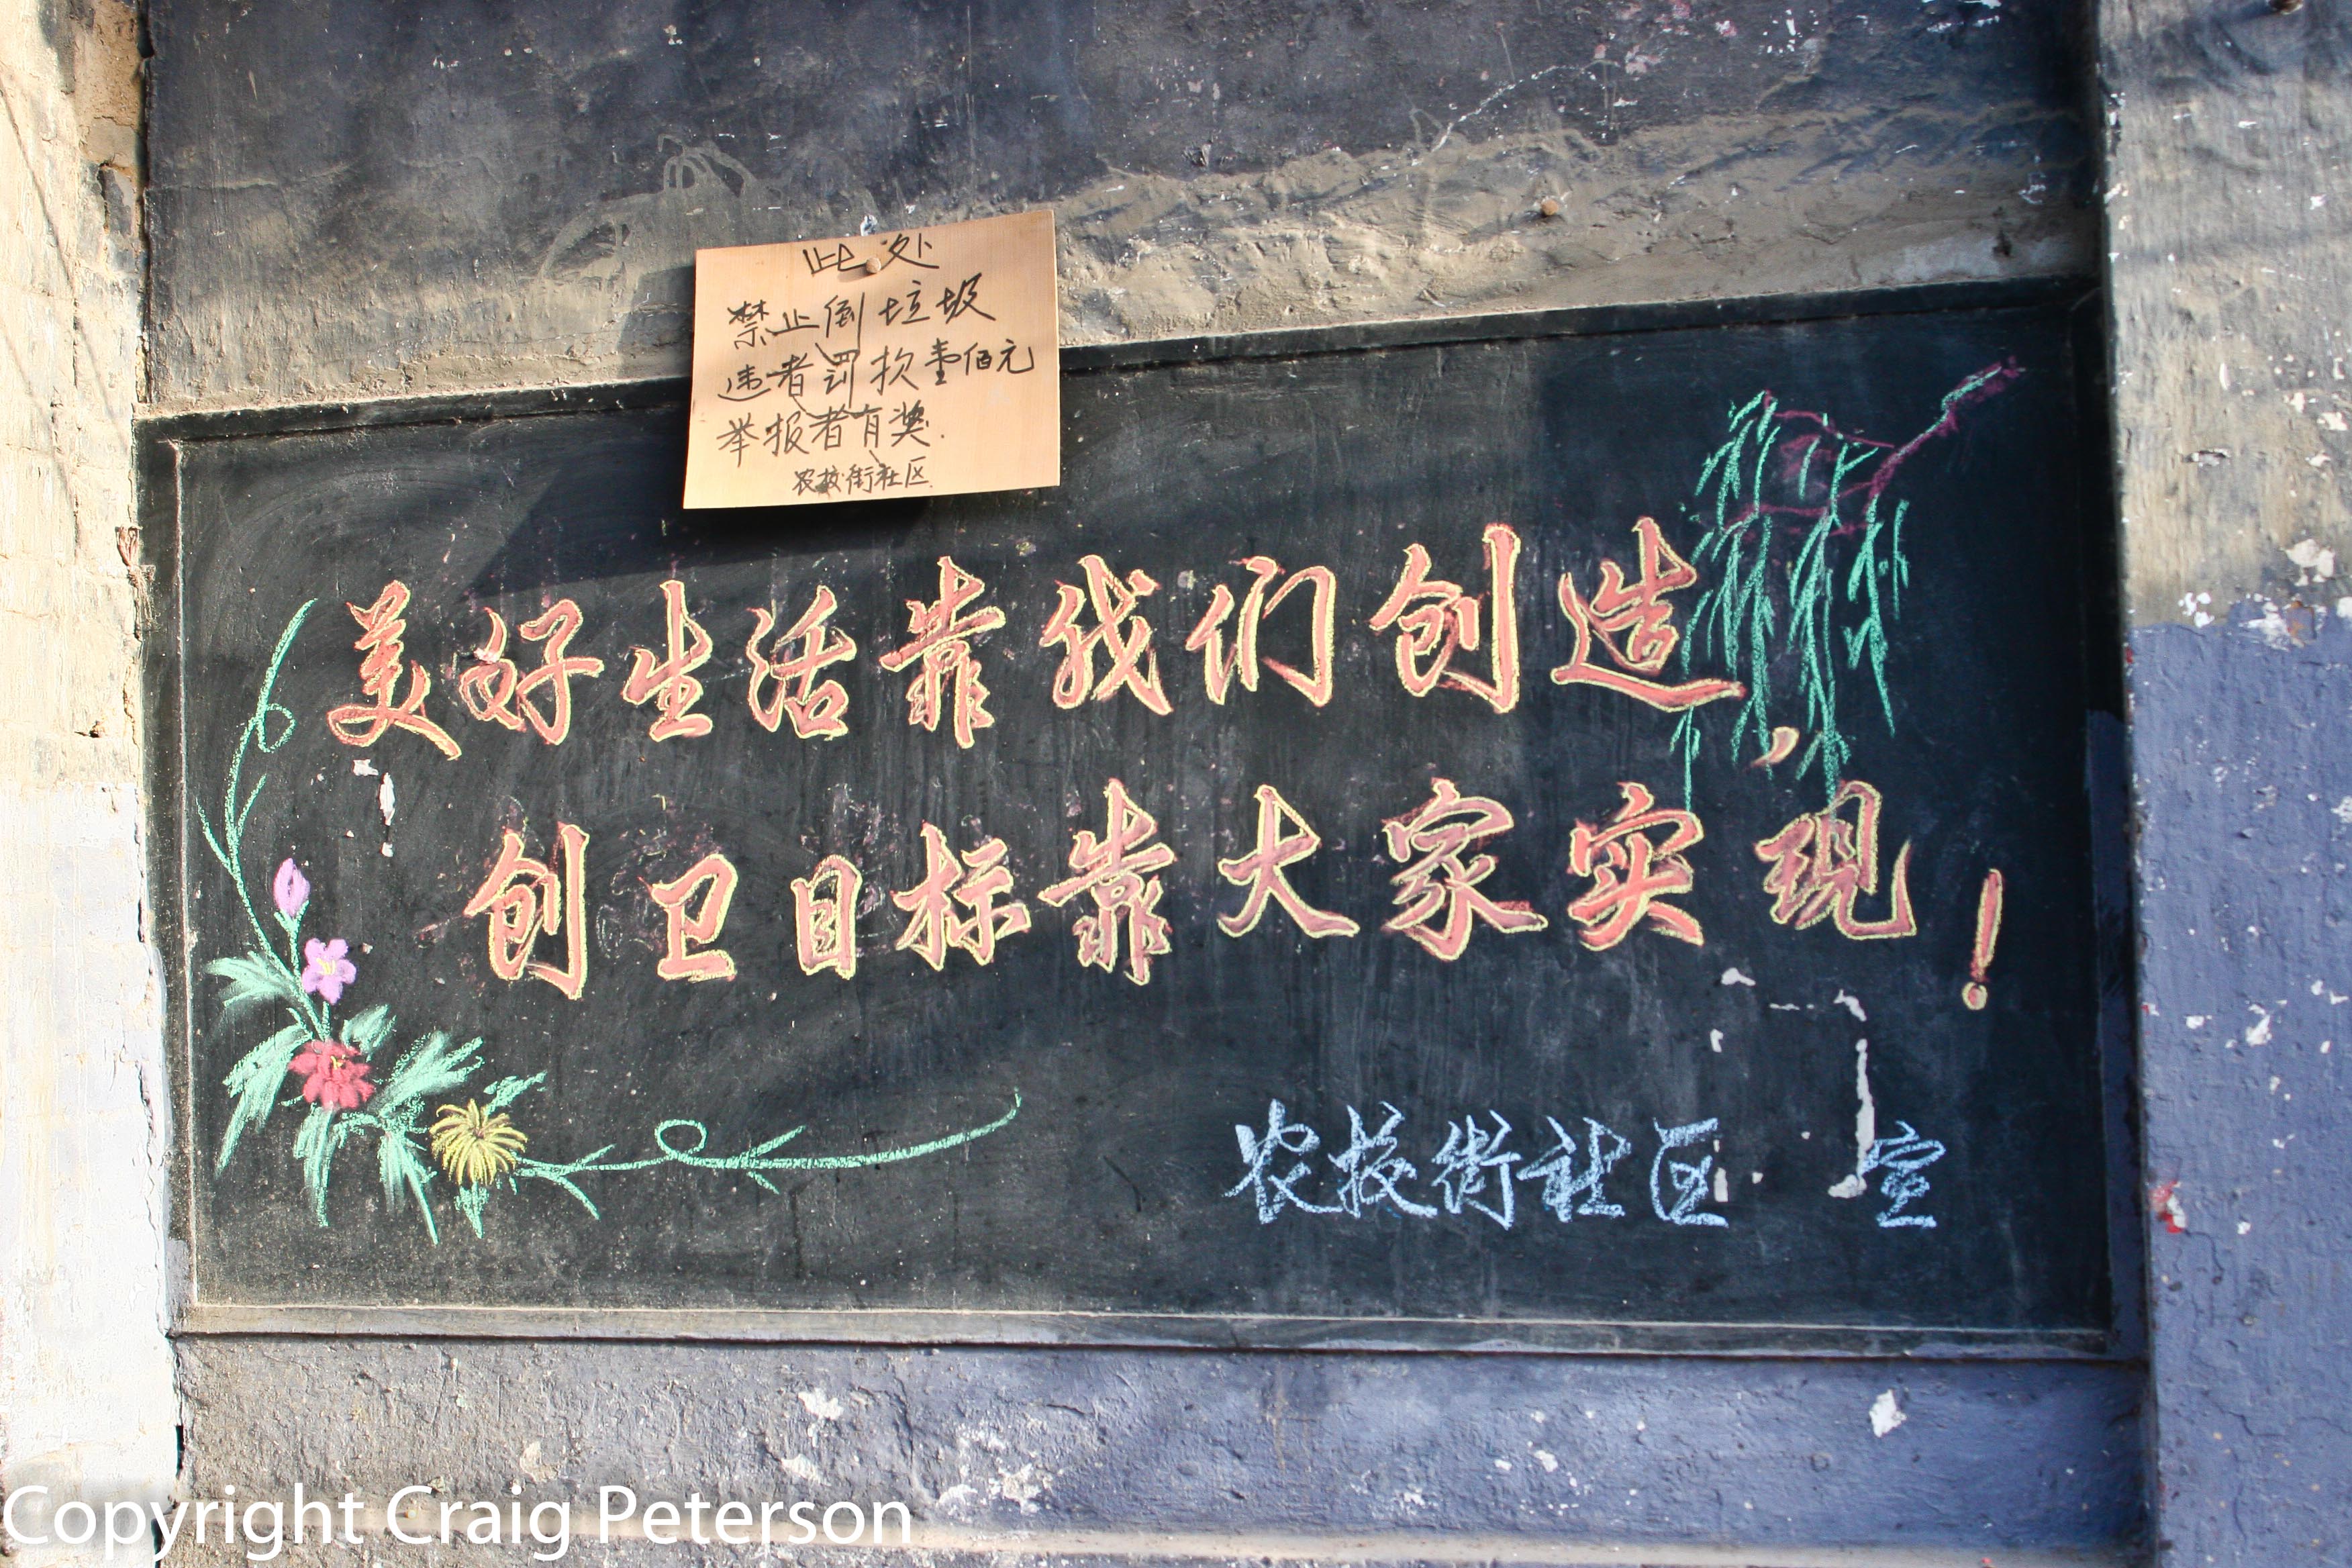 此处
禁止倒垃圾
违者罚款壹佰元
举报者有奖.
农校街社区
美好生活靠我们创造，
创卫目标靠大家实现！
农校街社区 宣
Copyright Craig Peterson